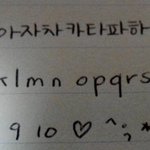 아자차카타파하
klmn opqrs
9 10 ♡ ^;